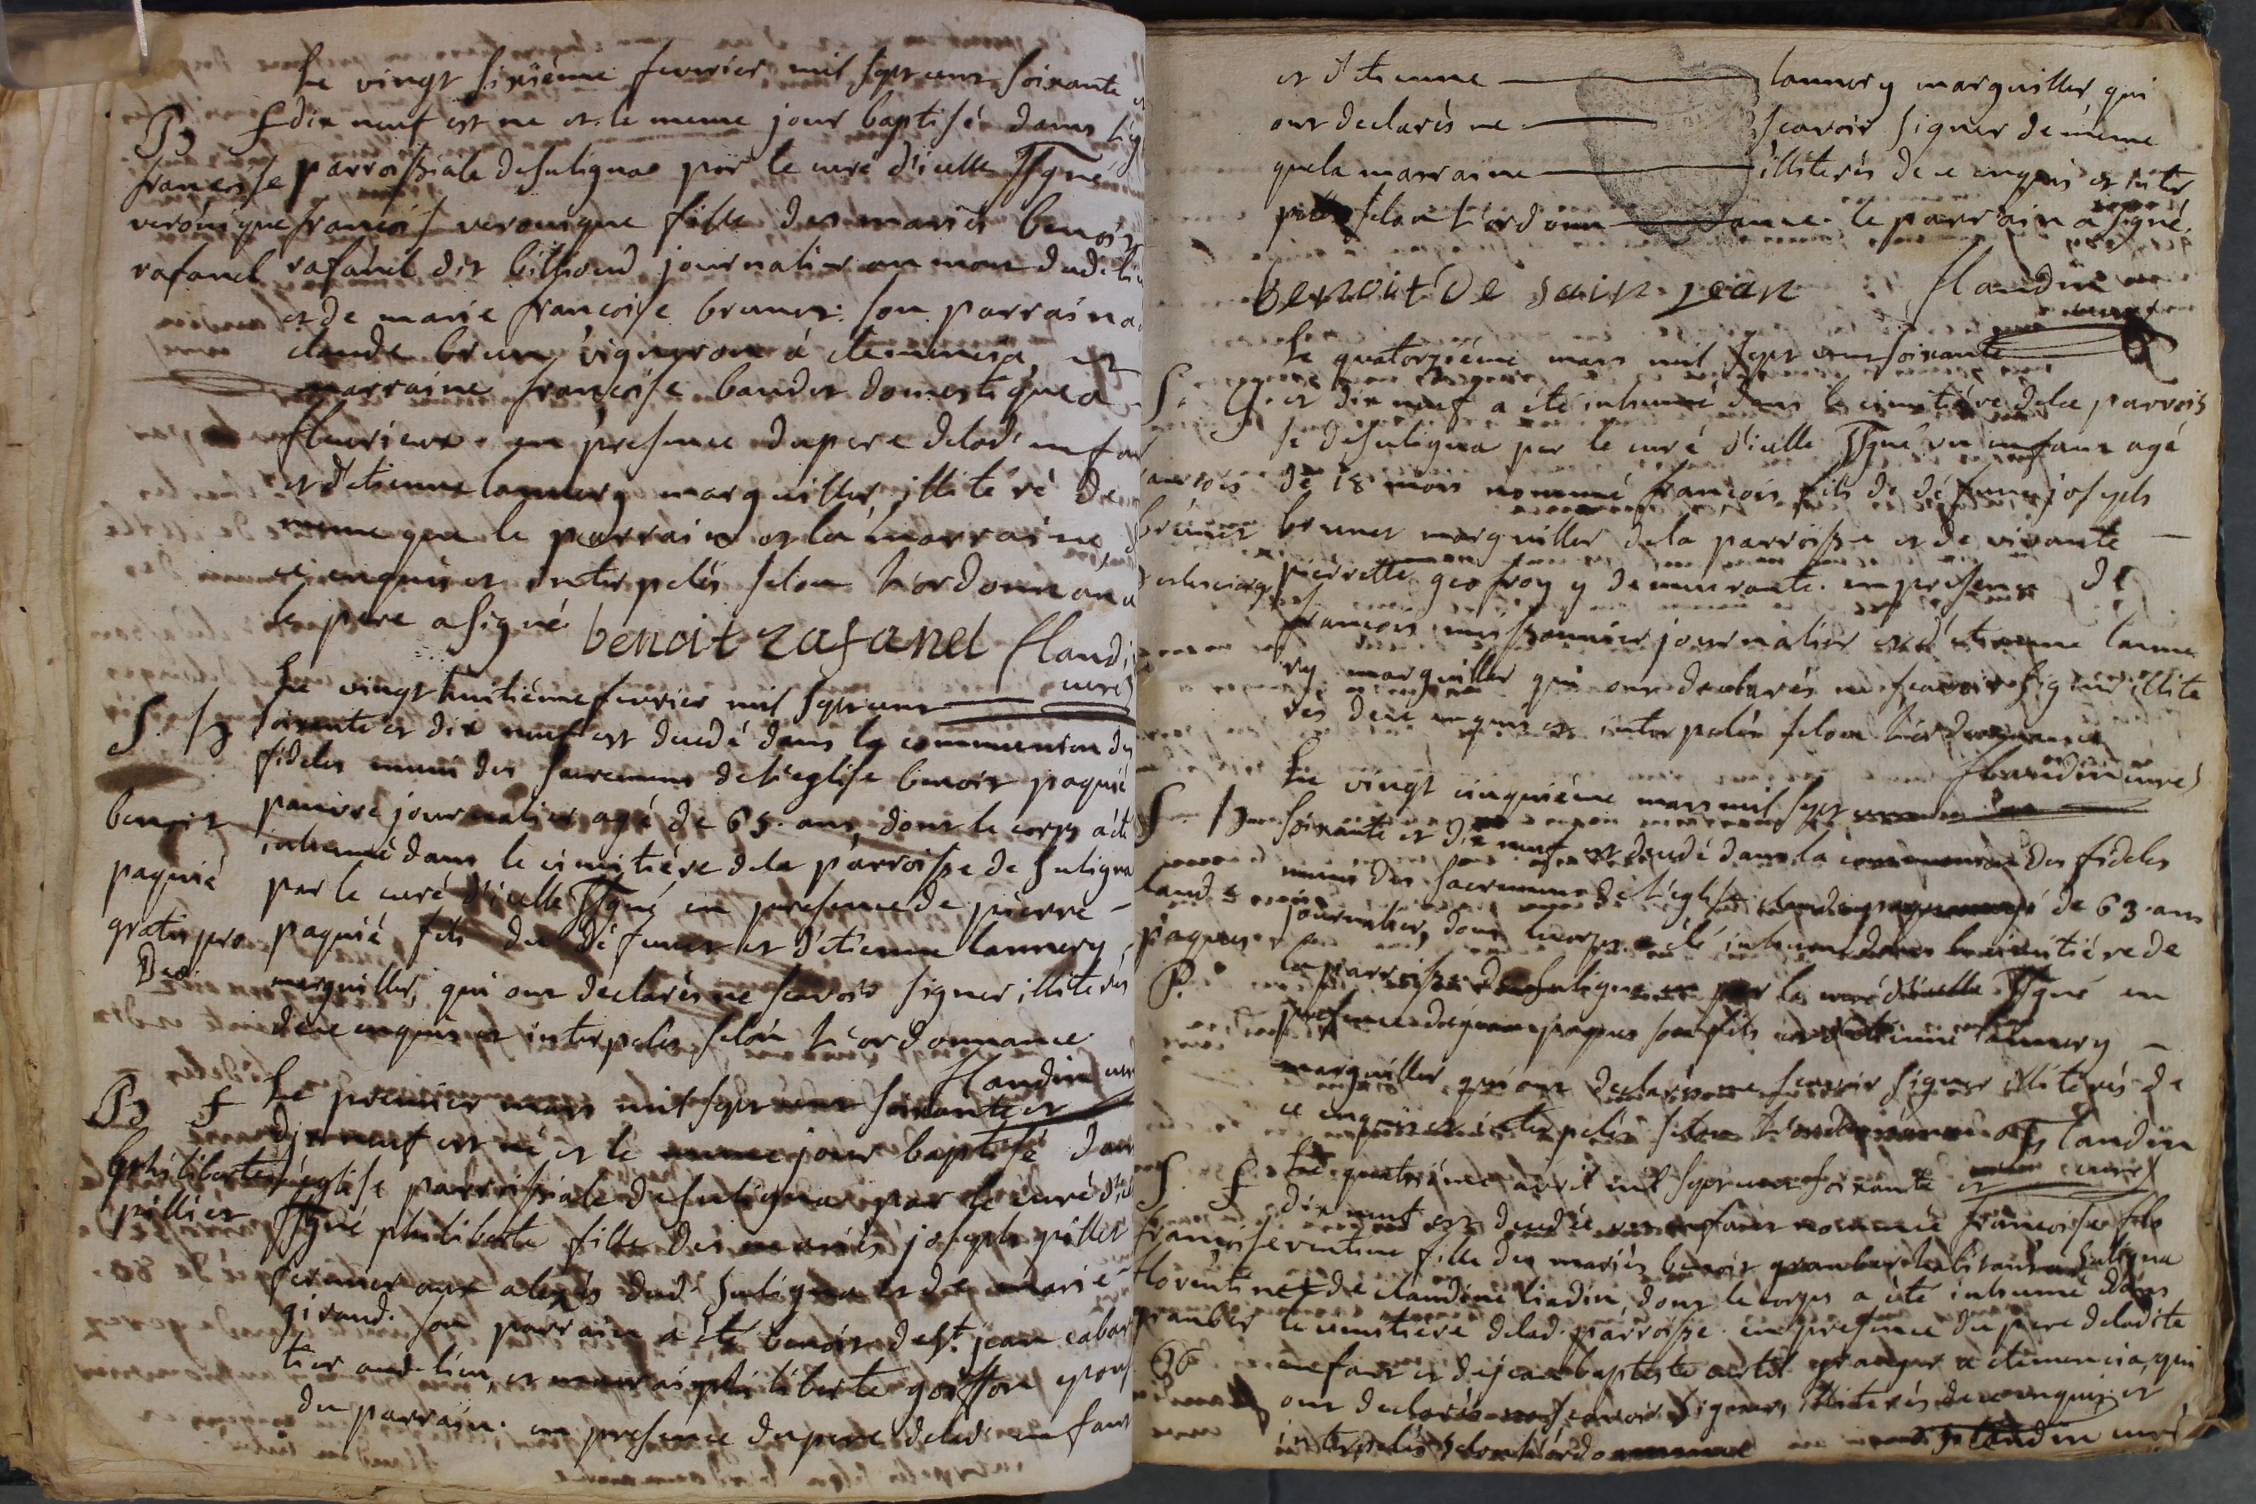 Le vingt sixiéme fevrier mil sept cent soixante et
B f dix neuf est ne et le meme jour baptisé dans l'eg
francoise parroissiale de suligna par le curé d'icelle ssgné
veronique francois veronique fille des mariés benoit
rafanel rafanel dit billioud journalier au mon dud. lieu
et de marie francoise brunet. son parrain a
claude brun vigneron á clemencia, et
marraine francoise baudet domestique a
fleurieux. en presence du pere de lad. enfan
et d'etienne lannery marguiller, illiteré de
meme que le parrain et la marraine, d
ce enquis et interpelés selon l'ordonnan
le pere a signé benoit rafanel flandi
curé
Le vingt huitiéme fevrier mil sept cent
S. h soixante et dix neuf est decedé dans la communion des
fideles muni des sacremens de l'eglise benoit paquié
benoit pauvre journalier agé de 65. ans, dont le corps a eté
inhumé dans le cimitiére de la parroisse de suligna
paquié par le curé d'icelle ssgné en presence de pierre
gratis pro paquié fils du défunct et d'etienne lannery
Deo marguiller, qui ont declarés ne scavoir signer illiterés
de ce enquis et interpelés selon l'ordonnance.
flandin curé
B f Le premier mars mil sept cent soixante et
dix neuf est né et le meme jour baptisé dans
philiberte l'eglise parroissiale de suligna par le curé d'ic
pillet ssgné philiberte fille des mariés joseph pillet
fermier aux alegés dud. suligna et de marie
giraud. son parrain a eté benoit de st. jean cabar
tier aud. lieu, et marrai philiberte goiffon epous
du parrain. en presence du pere de lad. enfant
et d'etienne lannery marguiller, qui
ont declarés ne scavoir signer de meme
que la marraine illiterés de ce enquis et inter
pelés selon l'ordonn ance. le parrain a signé.
benoit De sain jean flandin
curé
Le quatorziéme mars mil sept cent soixante
S. G. et dix neuf a été inhumé dans le cimitiére de la parrois
se de suligna par le curé d'icelle ssgné un enfant agé
francois de 18 mois nommé francois fils de défunct joseph
brunet brunet marguiller de la parroisse et de vivante
pierrette geofroy y demeurante. en presence de
francois missonnier journalier et d'etienne lanne
ry marguiller qui ont declarés ne scavoir signer illite
rés de ce enquis et interpelés selon l'ordonnance
flandin curé
Le vingt cinquiéme mars mil sept cent
S. h soixante et dix neuf est decedé dans la communion des fideles
muni des sacremens de l'eglise claude paques agé de 63. ans
claude journalier, dont le corps a été inhumé dans le cimitiére de
paques la parroisse de suligna par le curé d'icelle ssgné en
P. presence de paques son fils et d'etienne lannery
marguiller qui ont declarés ne scavoir signer illiterés de
ce enquis et interpelés selon l'ordonnance flandin
curé
S. f. Le quatriéme avril mil sept cent soixante et
dix neuf est decedée un enfant nommée francoise flo
francoise ventine fille des mariés benoit granber habitant a suligna
floventine et de claudine liadin, dont le corps a été inhumé dans
granber le cimitiére de lad. parroisse. en presence du pere de ladite
enfant et de jean baptiste granger a clemencia, qui
ont declarés ne scavoir signer, illiterés de ce enquis et
interpelés selon l'ordonnance flandin curé